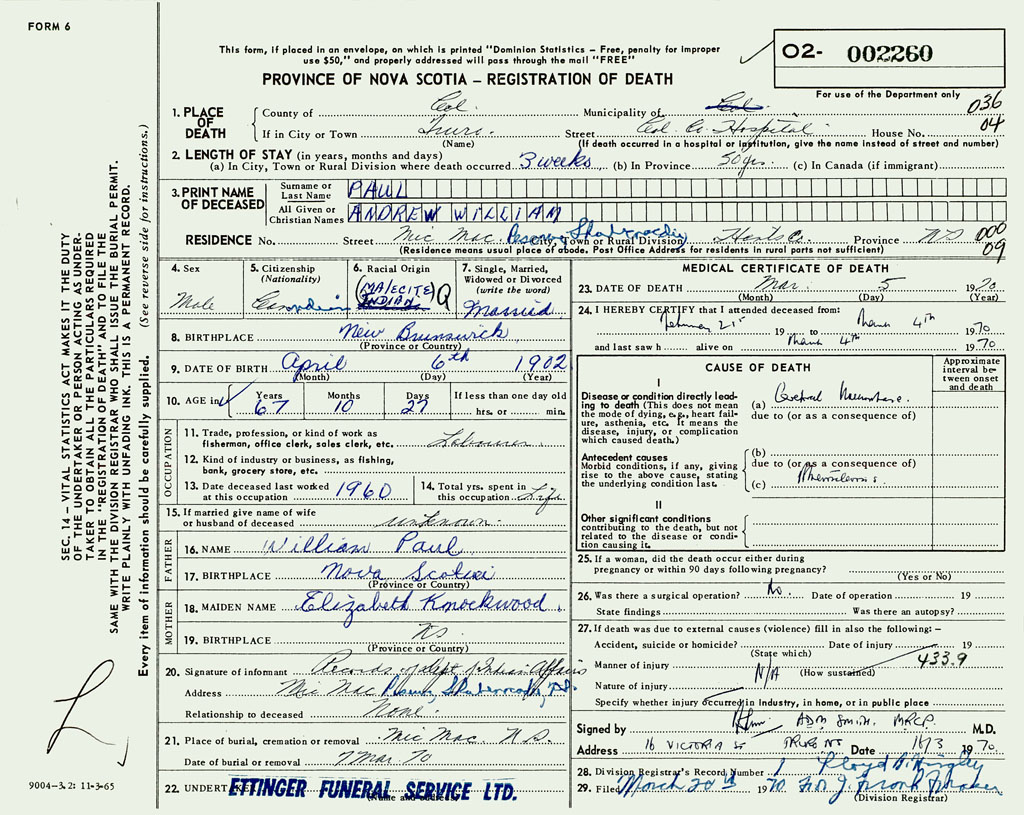 FORM 6
This form, if placed in an envelope, on which is printed "Dominion Statistics – Free, penalty for improper
use $50," and properly addressed will pass through the mail "FREE"
PROVINCE OF NOVA SCOTIA – REGISTRATION OF DEATH
02- 002260
For use of the Department only
036
04
1. PLACE OF DEATH
County of Col. Municipality of Col.
If in City or Town Truro. Street Col. Co. Hospital House No.
(Name) (If death occurred in a hospital or institution, give the name instead of street and number)
2. LENGTH OF STAY (in years, months and days)
(a) In City, Town or Rural Division where death occurred 3 weeks (b) In Province 50 yrs. (c) In Canada (if immigrant)
3. PRINT NAME OF DECEASED
Surname or Last Name PAUL
All Given or Christian Names ANDREW WILLIAM
RESIDENCE No. Street Mic Mac Reserve Shubenacadie Hants Co. Province NS
(City, Town or Rural Division)
(Residence means usual place of abode. Post Office Address for residents in rural parts not sufficient)
000
09
4. Sex
Male
5. Citizenship
(Nationality)
Canadian
6. Racial Origin
(MALECITE) Q
INDIAN
7. Single, Married,
Widowed or Divorced
(write the word)
Married
8. BIRTHPLACE New Brunswick
(Province or Country)
9. DATE OF BIRTH April 6th 1902
(Month) (Day) (Year)
10. AGE in Years 67 Months 10 Days 27 If less than one day old
hrs. or min.
OCCUPATION
11. Trade, profession, or kind of work as
fisherman, office clerk, sales clerk, etc. Labourer
12. Kind of industry or business, as fishing,
bank, grocery store, etc.
13. Date deceased last worked
at this occupation 1960
14. Total yrs. spent in
this occupation Life
15. If married give name of wife
or husband of deceased unknown
FATHER
16. NAME William Paul
17. BIRTHPLACE Nova Scotia
(Province or Country)
MOTHER
18. MAIDEN NAME Elizabeth Knockwood
19. BIRTHPLACE NS
(Province or Country)
20. Signature of informant Records of Dept. of Indian Affairs
Address Mic Mac Reserve, Shubenacadie, N.S.
Relationship to deceased None.
21. Place of burial, cremation or removal Mic Mac. N.S.
Date of burial or removal 7 Mar. 70
22. UNDERTAKER ETTINGER FUNERAL SERVICE LTD.
(Name and address)
MEDICAL CERTIFICATE OF DEATH
23. DATE OF DEATH Mar. 5 1970
(Month) (Day) (Year)
24. I HEREBY CERTIFY that I attended deceased from:
February 21st 19 to March 4th 1970
and last saw h alive on March 4th 1970
CAUSE OF DEATH
Approximate interval between onset and death
I
Disease or condition directly leading to death (This does not mean the mode of dying, e.g., heart failure, asthenia, etc. It means the disease, injury, or complication which caused death.)
(a) Cerebral
due to (or as a consequence of)
Antecedent causes
Morbid conditions, if any, giving rise to the above cause, stating the underlying condition last.
(b)
due to (or as a consequence of)
(c)
II
Other significant conditions
contributing to the death, but not related to the disease or condition causing it.
25. If a woman, did the death occur either during
pregnancy or within 90 days following pregnancy?
(Yes or No)
26. Was there a surgical operation? No. Date of operation 19
State findings Was there an autopsy?
27. If death was due to external causes (violence) fill in also the following: –
Accident, suicide or homicide? Date of injury 19
(State which)
433.9
Manner of injury N/A
(How sustained)
Nature of injury
Specify whether injury occurred in industry, in home, or in public place
Signed by ADM SMITH. MRCP. M.D.
Address 16 VICTORIA ST TRURO NS Date 16/3 1970
28. Division Registrar's Record Number 1
29. Filed March 20th 1970
(Division Registrar)
SEC. 14 – VITAL STATISTICS ACT MAKES IT THE DUTY
OF THE UNDERTAKER OR PERSON ACTING AS UNDER-
TAKER TO OBTAIN ALL THE PARTICULARS REQUIRED
IN THE "REGISTRATION OF DEATH" AND TO FILE THE
SAME WITH THE DIVISION REGISTRAR WHO SHALL ISSUE THE BURIAL PERMIT.
WRITE PLAINLY WITH UNFADING INK. THIS IS A PERMANENT RECORD.
Every item of information should be carefully supplied. (See reverse side for instructions.)
9004-3.2: 11-3-65